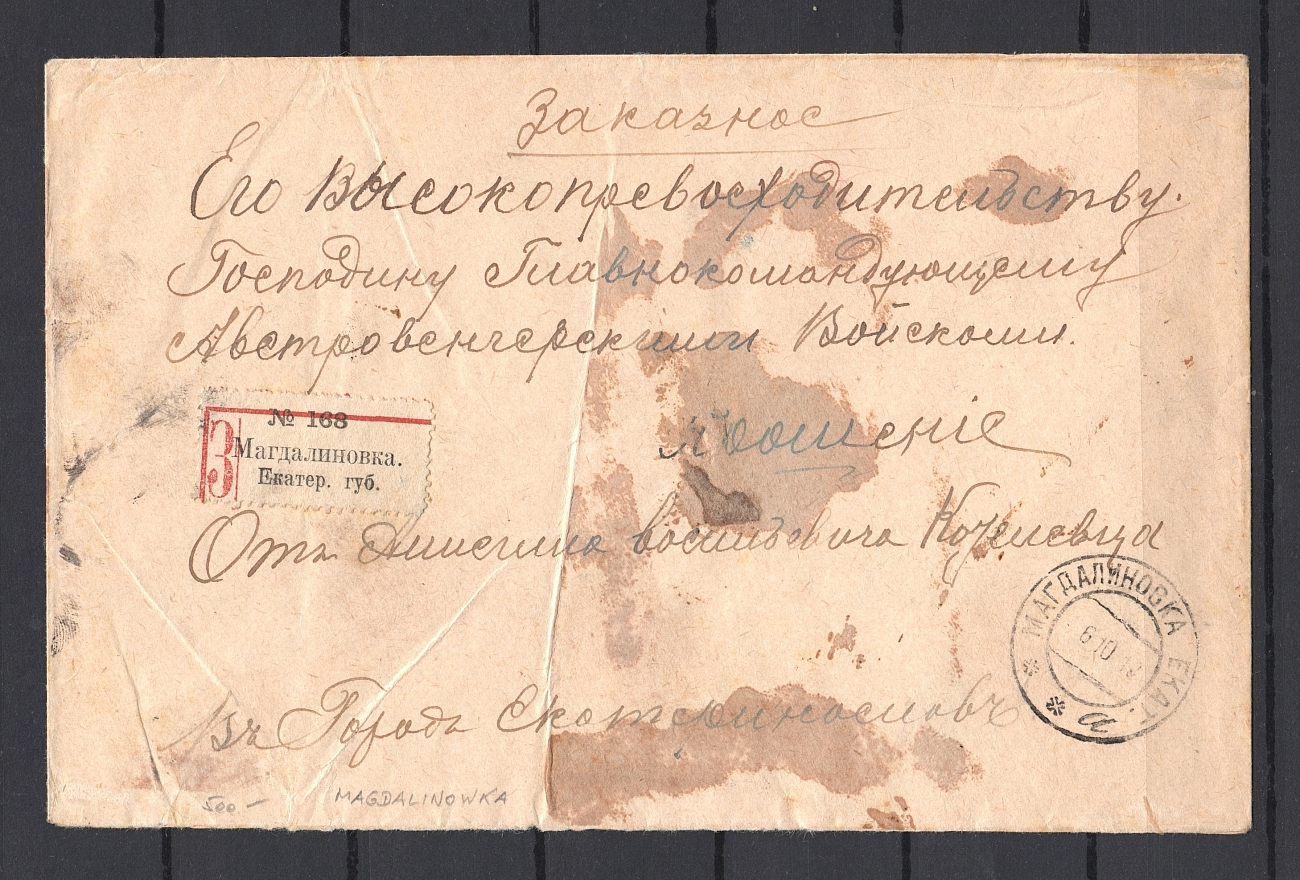 Заказное
Его Высокопревосходительству.
Господину Главнокомандующему
Австровенгерскими Войсками.
№ 168
З
Магдалиновка.
Екатер. губ.
От Васильевича
МАГДАЛИНОВКА ЕКАТ.
6 10 18
Въ Городъ Екатеринославъ
500 –
MAGDALINOWKA